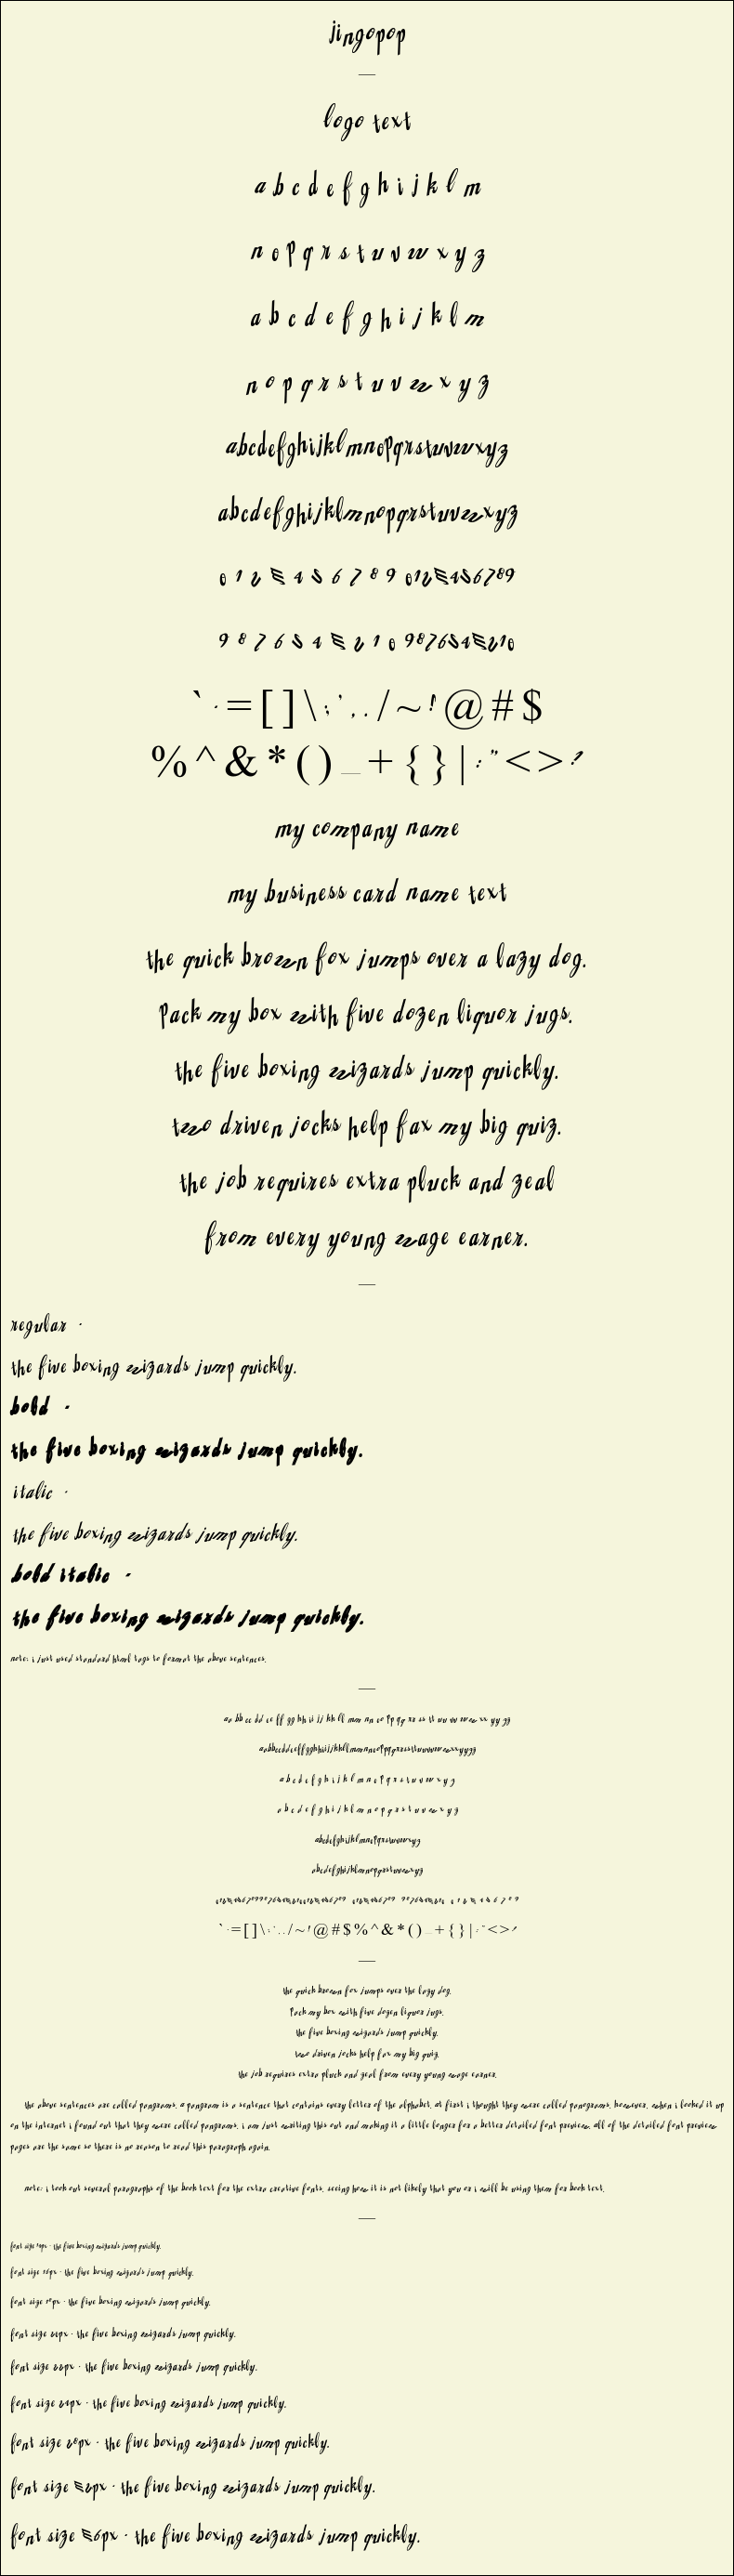 jingopop
—
logo text
a b c d e f g h i j k l m
n o p q r s t u v w x y z
a b c d e f g h i j k l m
n o p q r s t u v w x y z
abcdefghijklmnopqrstuvwxyz
abcdefghijklmnopqrstuvwxyz
0 1 2 3 4 5 6 7 8 9 0123456789
9 8 7 6 5 4 3 2 1 0 9876543210
` - = [ ] \ ; ' , . / ~ ! @ # $
% ^ & * ( ) _ + { } | : " < > ?
my company name
my business card name text
the quick brown fox jumps over a lazy dog.
Pack my box with five dozen liquor jugs.
the five boxing wizards jump quickly.
two driven jocks help fax my big quiz.
the job requires extra pluck and zeal
from every young wage earner.
—
regular -
the five boxing wizards jump quickly.
bold -
the five boxing wizards jump quickly.
italic -
the five boxing wizards jump quickly.
bold italic -
the five boxing wizards jump quickly.
note: i just used standard html tags to format the above sentences.
—
aa bb cc dd ee ff gg hh ii jj kk ll mm nn oo Pp qq rr ss tt uu vv ww xx yy zz
aabbccddeeffgghhiijjkkllmmnnooPpqqrrssttuuvvwwxxyyzz
a b c d e f g h i j k l m n o P q r s t u v w x y z
a b c d e f g h i j k l m n o p q r s t u v w x y z
abcdefghijklmnoPqrstuvwxyz
abcdefghijklmnopqrstuvwxyz
` - = [ ] \ ; ' , . / ~ ! @ # $ % ^ & * ( ) _ + { } | : " < > ?
—
the quick brown fox jumps over the lazy dog.
Pack my box with five dozen liquor jugs.
the five boxing wizards jump quickly.
two driven jocks help fax my big quiz.
the job requires extra pluck and zeal from every young wage earner.
the above sentences are called pangrams. a pangram is a sentence that contains every letter of the alphabet. at first i thought they were called panograms. however, when i looked it up
on the internet i found out that they were called pangrams. i am just writing this out and making it a little longer for a better detailed font preview. all of the detailed font preview
pages are the same so there is no reason to read this paragraph again.
note: i took out several paragraphs of the book text for the extra creative fonts. seeing how it is not likely that you or i will be using them for book text.
—
font size - the five boxing wizards jump quickly.
font size 16px - the five boxing wizards jump quickly.
font size 18px - the five boxing wizards jump quickly.
font size 20px - the five boxing wizards jump quickly.
font size 22px - the five boxing wizards jump quickly.
font size 24px - the five boxing wizards jump quickly.
font size 28px - the five boxing wizards jump quickly.
font size 32px - the five boxing wizards jump quickly.
font size 36px - the five boxing wizards jump quickly.